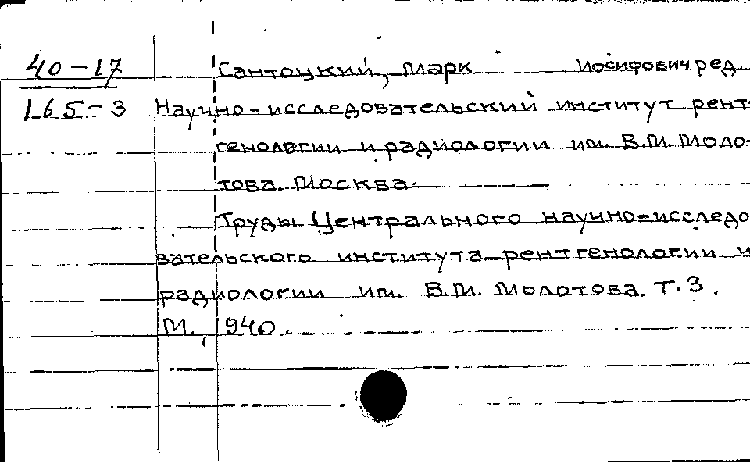 40-17 Сантоцкий, Марк Иосифович ред.
165-3 Научно-исследовательский институт рент-
генологии и радиологии им. В.М. Моло-
това. Москва.
Труды Центрального научно-исследо
вательского института рентгенологии и
радиологии им. В.М. Молотова. Т.3.
М., 1940.